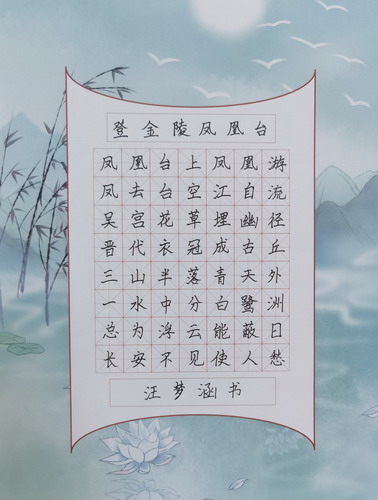 登金陵凤凰台
凤凰台上凤凰游
凤去台空江自流
吴宫花草埋幽径
晋代衣冠成古丘
三山半落青天外
一水中分白鹭洲
总为浮云能蔽日
长安不见使人愁
汪梦涵书